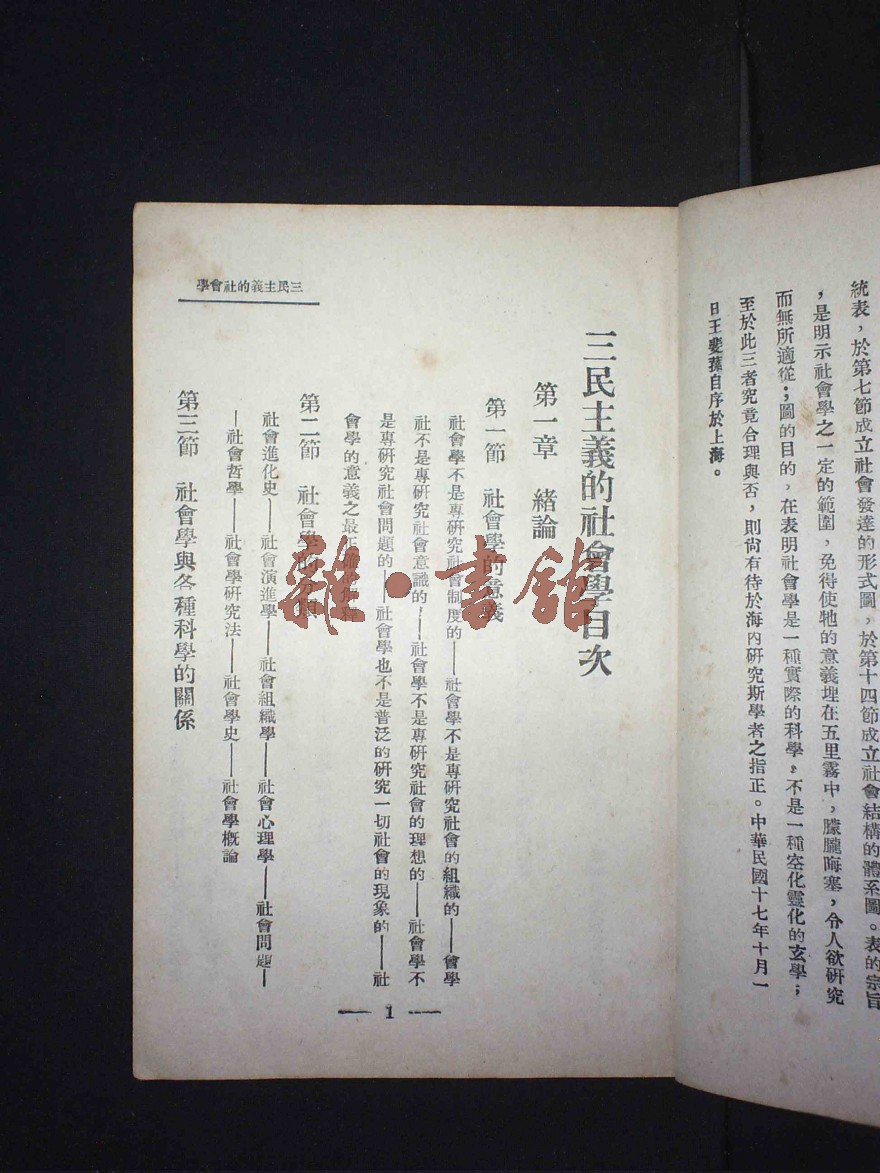 統表，於第七節成立社會發達的形式圖，於第十四節成立社會結構的體系圖。表的宗旨
，是明示社會學之一定的範圍，免得使牠的意義埋在五里霧中，朦朧晦塞，令人欲研究
而無所適從；圖的目的，在表明社會學是一種實際的科學，不是一種空化靈化的玄學；
至於此三者究竟合理與否，則尚有待於海內研究斯學者之指正。中華民國十七年十月一
日王斐蓀自序於上海。
學會社的義主民三
三民主義的社會學目次
第一章　緒論
第一節　社會學的意義
社會學不是專研究社會制度的——社會學不是專研究社會的組織的——會學
社不是專研究社會意識的——社會學不是專研究社會的理想的——社會學不
是專研究社會問題的——社會學也不是普泛的研究一切社會的現象的——社
會學的意義之最正確的解釋
第二節　社會學的分類
社會進化史——社會演進學——社會組織學——社會心理學——社會問題—
—社會哲學——社會學研究法——社會學史——社會學概論
第三節　社會學與各種科學的關係
— 1 —
雜·書館